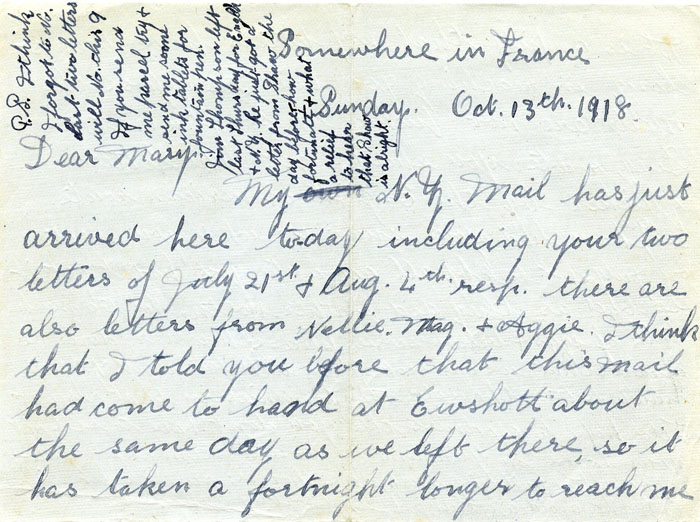 Somewhere in France
Sunday. Oct. 13th. 1918.
Dear Mary.
My own N.Z. Mail has just
arrived here to-day including your two
letters of July 21st & Aug. 4th. resp. there are
also letters from Nellie. Mag. & Aggie. I think
that I told you before that this mail
had come to hand at Ewshott about
the same day as we left there, so it
has taken a fortnight longer to reach me
P.S. I think
I forgot to No.
last two letters
will do this 9
If you send
me parcel try &
send me some
ink tablets for
fountain pen.
Tom Thompson left
last Thursday for
& he just got a
letter from Shaw the
day before, how
fortunate & what
a relief
to hear
that Shaw
is alright.